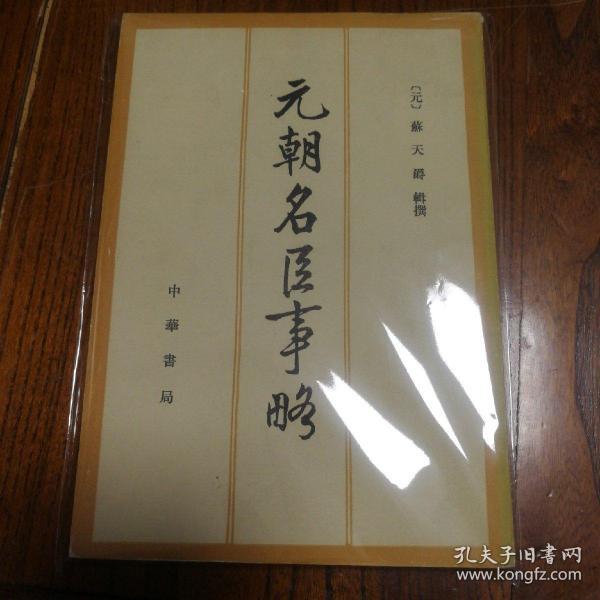 〔元〕蘇天爵輯撰
元朝名臣事略
中華書局
孔夫子旧书网
www.kongfz.com